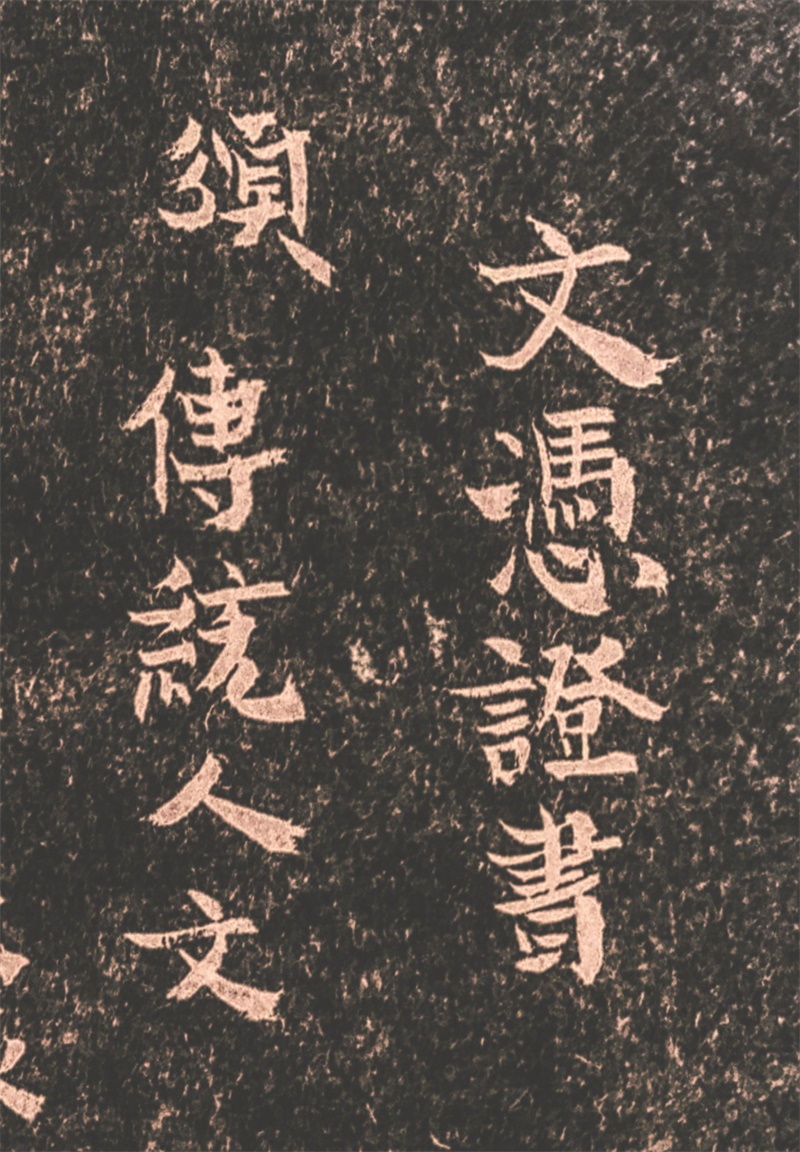 文憑證書
須傳統人文